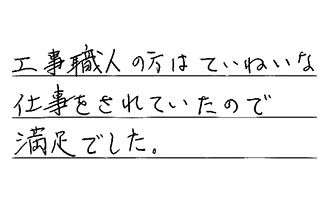 工事職人の方はていねいな
仕事をされていたので
満足でした。